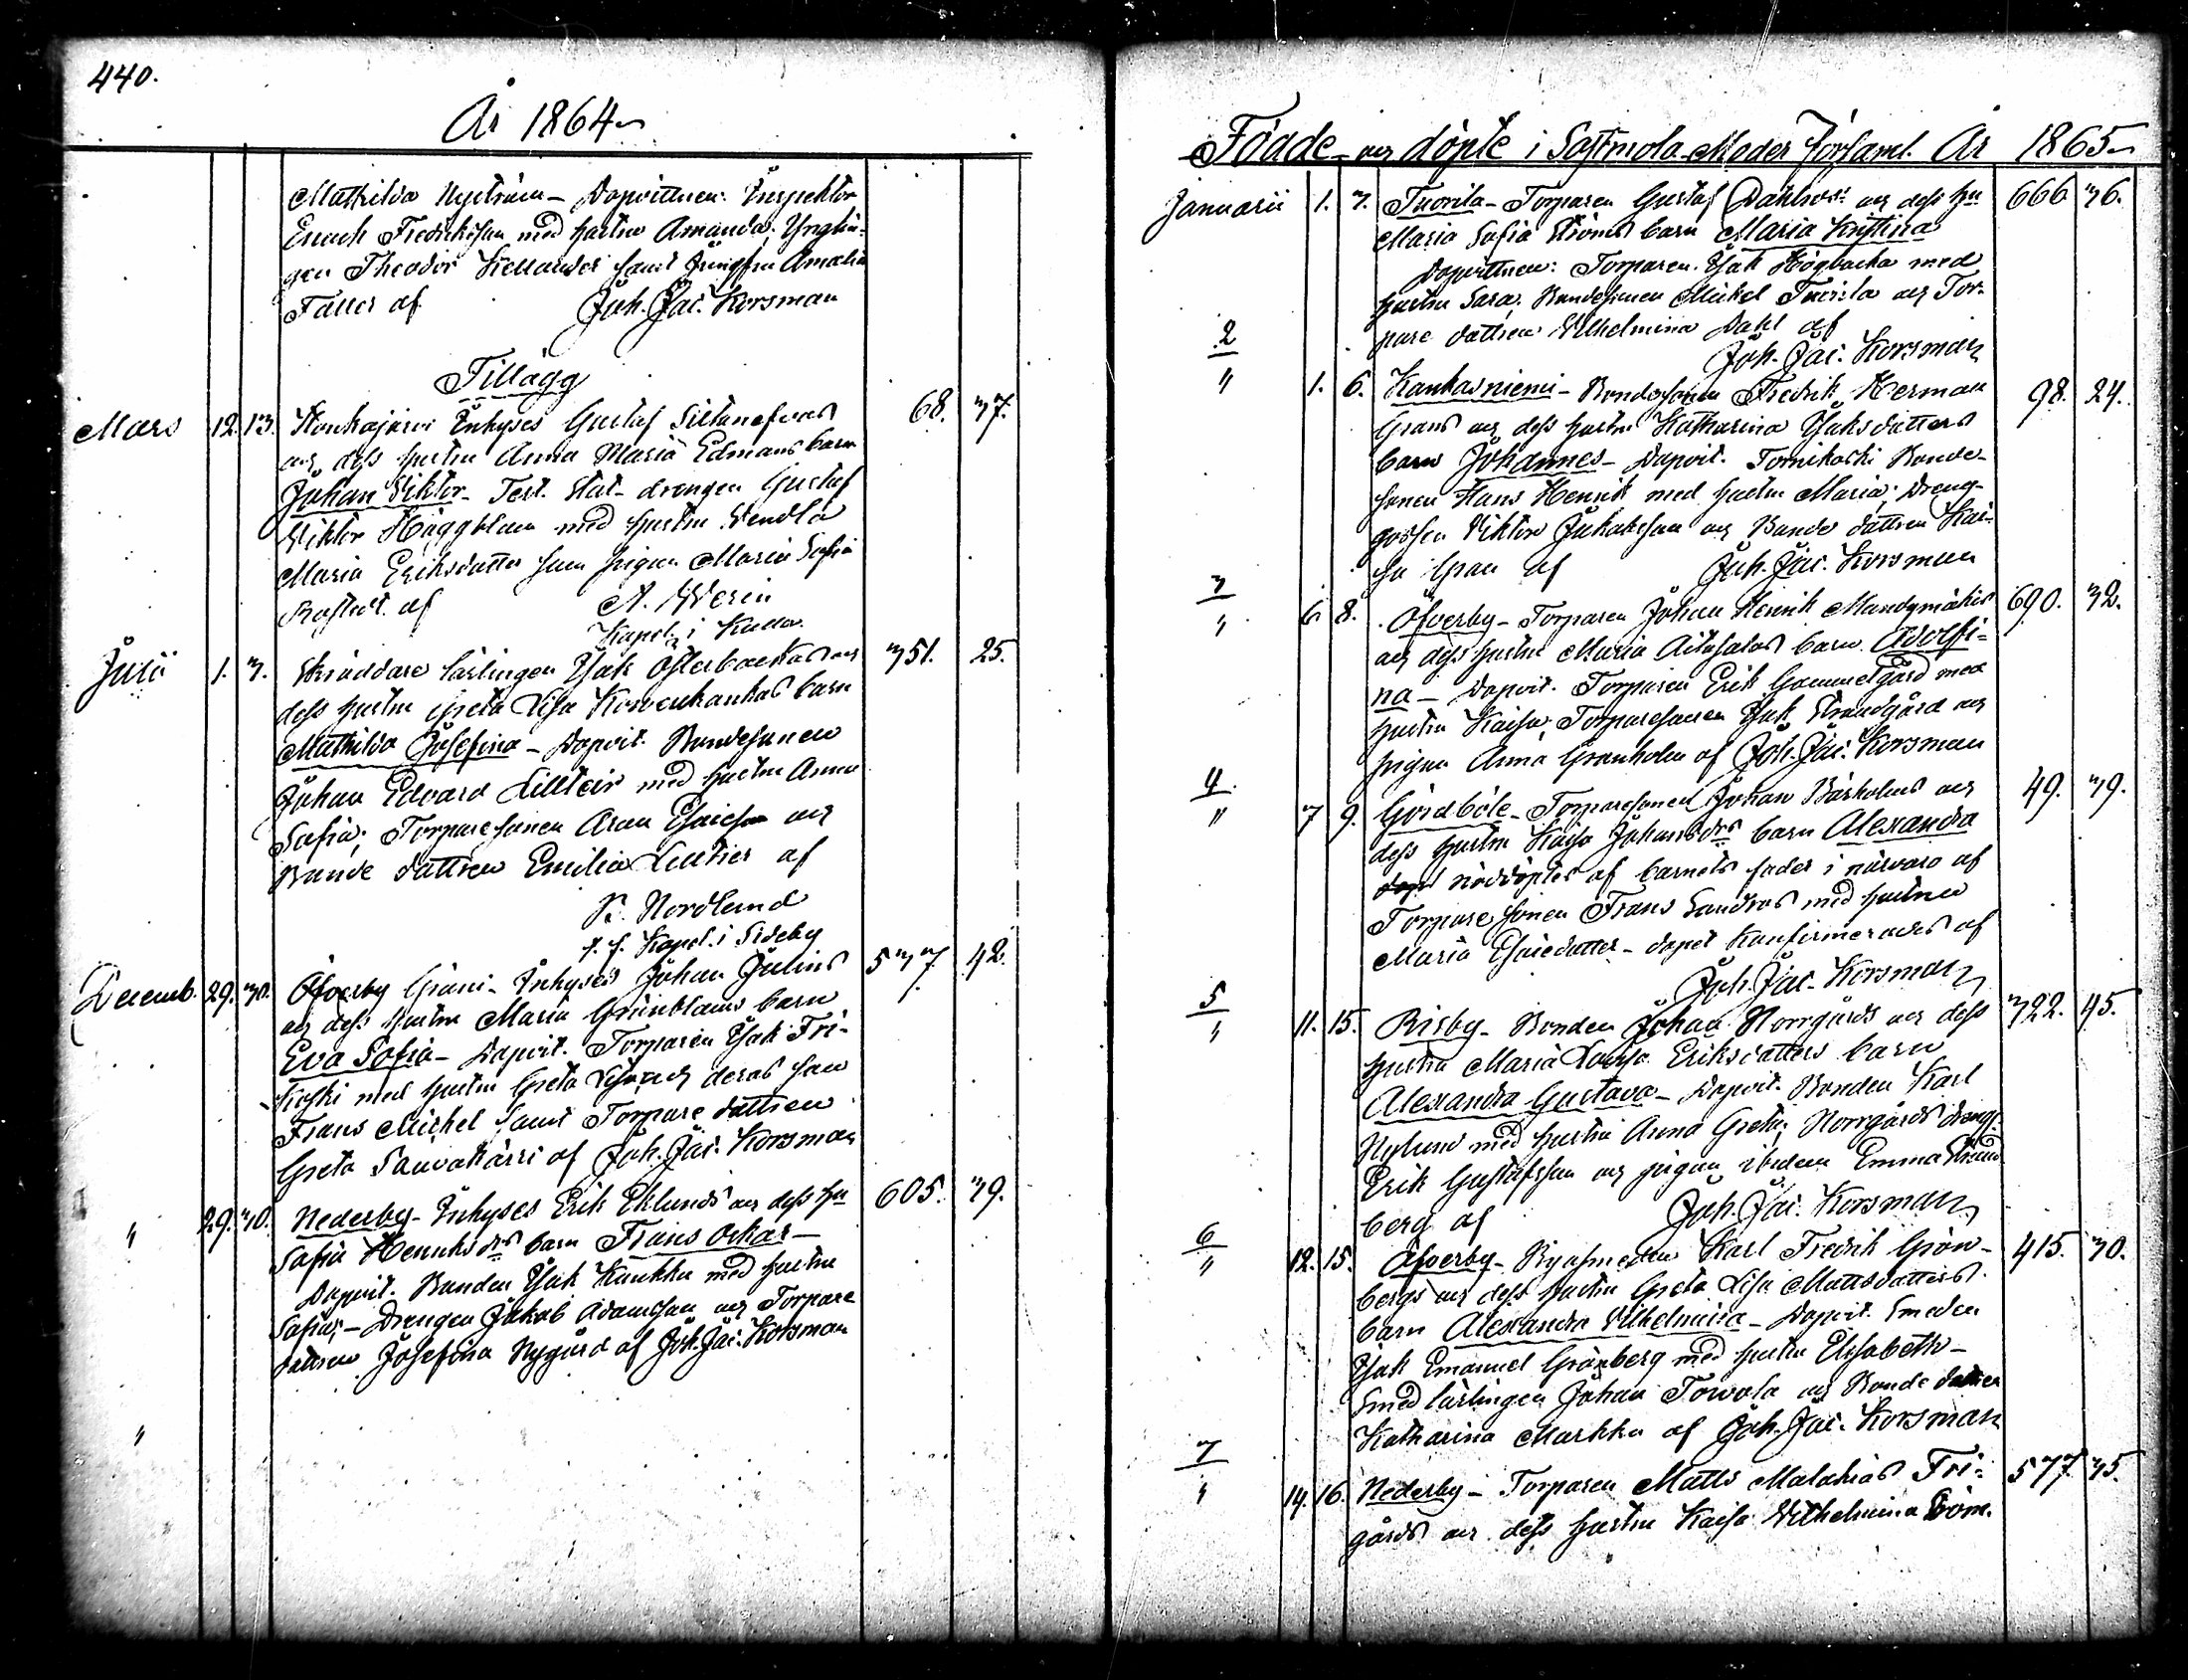 440.
År 1864
Mathilda Nyström - Dopvittnen: Inspektor
Enoch Fredriksson med hustru Amanda; Ynglin-
gen Theodor Kellander samt Jungfru Amalia
Faller af Joh. Jac. Korsman
Tillägg
Mars 12. 13. Kankajärvi Inhyses Gustaf Siltanefvas 68. 37.
och dess hustru Anna Maria Edmans barn
Johan Viktor - Test. Stat-drengen Gustaf
Viktor Häggblom med hustru Wendla
Maria Eriksdotter samt pigan Maria Sofia
af A. Werin
Kapel. i
Junii 1. 3. Skräddare lärlingen Isak Österbackas och 351. 25.
dess hustru Greta Lisa Korvenkankas barn
Mathilda Josefina - Dopvit. Bondesonen
Johan Edvard Lillteir med hustru Anna
Sofia; Torparesonen Aron Esaieson och
Bonde dottren Emilia Lilltier af
K. Nordlund
t. f. Kapel. i Sideby
Decemb. 29. 30. Öfverby Gräni - Inhyses Johan Julins 537. 42.
och dess hustru Maria Grönbloms barn
Eva Sofia - Dopvit. Torparen Isak Fri-
koski med hustru Greta Lisa och deras son
Frans Mickel samt Torpare dottren
Greta Sauvakärri af Joh. Jac. Korsman
" 29. 30. Nederby - Inhyses Erik Eklunds och dess hu 605. 39.
Sofia Henriks drs barn Frans Oskar -
Dopvit. Bonden Isak Kankku med hustru
Sofia; - Drengen Jakob Adamsson och Torpare
dottren Josefina Nygård af Joh. Jac. Korsman
"
Födde och döpte i Sastmola Moder Församl. År 1865
Januarii 1. 3. Tuorila - Torparen Gustaf Dahlros och dess hu 666. 36.
Maria Sofia Ströms barn Maria Kristina
Dopvittnen: Torparen Isak Högbacka med
hustru Sara; Bondesonen Mickel Tuorila och Tor-
pare dottren Vilhelmina Dahl af
Joh. Jac. Korsman
2
" 1. 6. Kankasniemi - Bondesonen Fredrik Herman 98. 24.
Grans och dess hustru Katharina Isaksdotters
barn Johannes - Dopvit. Tomikoski Bonde-
sonen Hans Henrik med hustru Maria; Dreng-
gossen Viktor Jakobsson och Bonde dottren Kai-
sa Gran af Joh. Jac. Korsman
3
" 6. 8. Öfverby - Torparen Johan Henrik Mandymäkis 690. 32.
och dess hustru Maria Aitasalos barn Adolfi-
na - Dopvit. Torparen Erik Gammelgård med
hustru Kaisa; Torparesonen Isak Strandgård och
pigan Anna Granholm af Joh. Jac. Korsman
4
" 7 9. Gårdböle - Torparesonen Johan Bärholms och 49. 39.
dess hustru Kaisa Johansdrs barn Alexandra
nöddöptes af barnets fader i närvaro af
Torparesonen Frans Sandros med hustru
Maria Esaiedotter - dopet konfirmerades af
Joh. Jac. Korsman
5
" 11. 15. Risby - Bonden Johan Norrgårds och dess 322. 45.
hustru Maria Lovisa Eriksdotters barn
Alexandra Gustava - Dopvit. Bonden Karl
Nylund med hustru Anna Greta; Norrgårds dreng
Erik Gustafsson och pigan ibidem Emma Strand
berg af Joh. Jac. Korsman
6
" 12. 15. Öfverby - Karl Fredrik Grön- 415. 30.
bergs och dess hustru Greta Lisa Mattsdotters
barn Alexandra Vilhelmina - Dopvit. Smeden
Isak Emanuel Grönberg med hustru Elisabeth -
Smed lärlingen Johan Torvola och Bonde dottren
Katharina Markku af Joh. Jac. Korsman
7
" 14. 16. Nederby - Torparen Matts Malakias Fri- 577. 35.
gårds och dess hustru Kaisa Vilhelmina Ström.